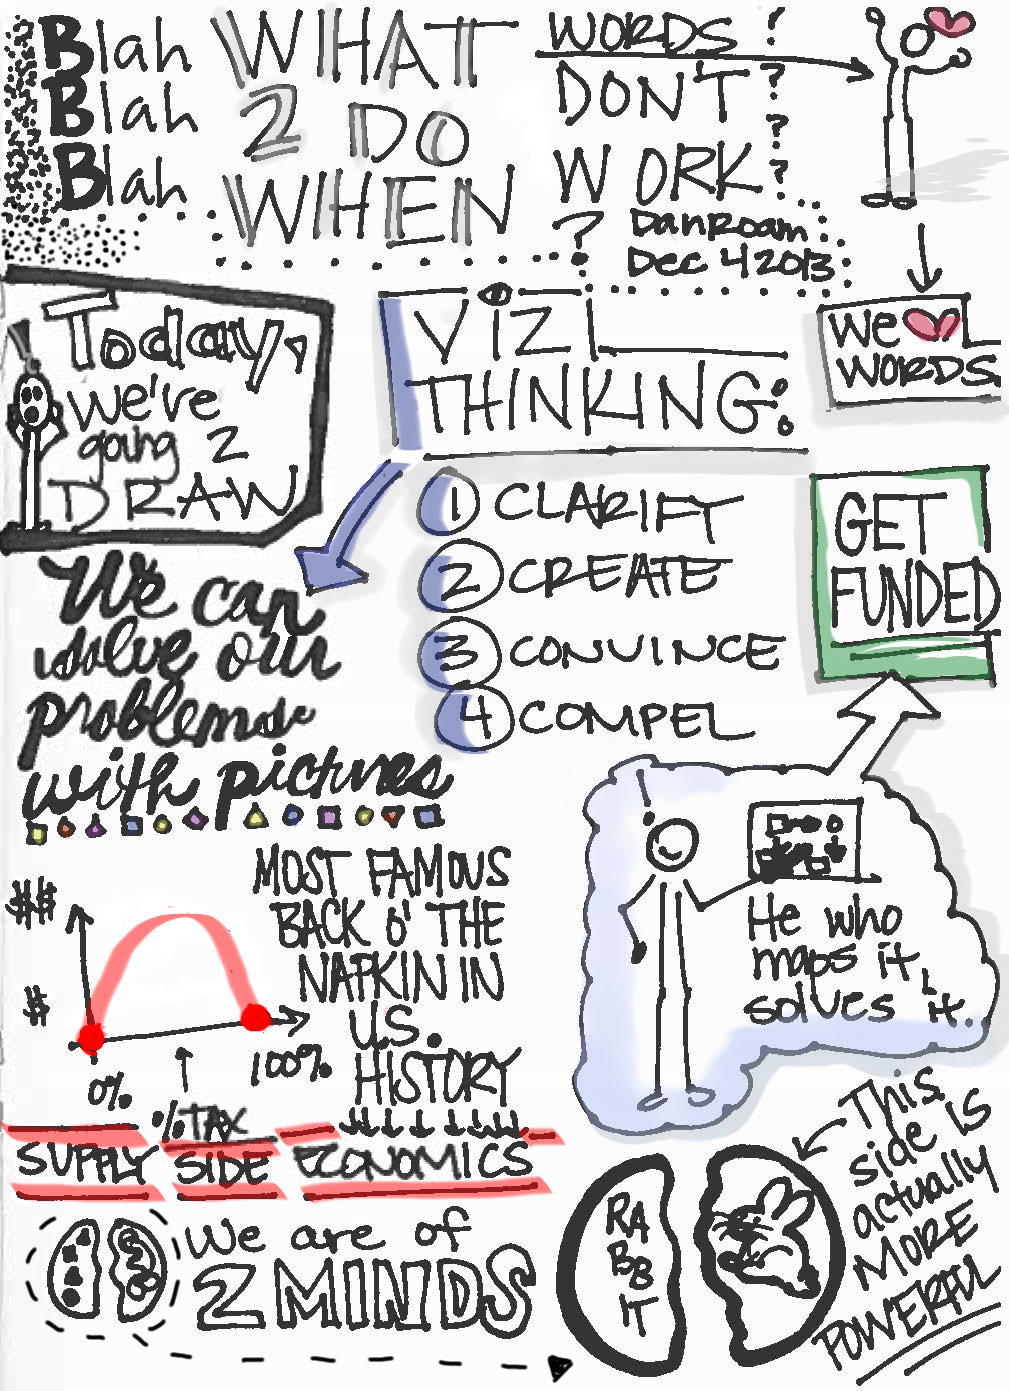 Blah
Blah
Blah
WHAT
2 DO
WHEN
WORDS ?
DON'T ?
WORK ?
?
?
DanRoam
Dec 4 2013
We L
WORDS.
Today,
we're
going 2
DRAW
VIZL
THINKING:
1 CLARIFY
2 CREATE
3 CONVINCE
4 COMPEL
GET
FUNDED
We can
solve our
problems
with pictures
He who
maps it,
solves it.
MOST FAMOUS
BACK O' THE
NAPKIN IN
U.S.
HISTORY
$$
$
0%
100%
% TAX
SUPPLY SIDE ECONOMICS
We are of
2 MINDS
RA
BB
IT
This
side is
actually
MORE
POWERFUL